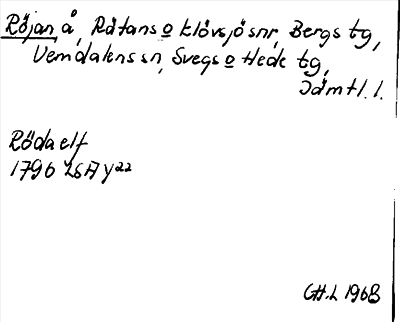 Röjan, å, Råtans o Klövsjö snr, Bergs tg,
Vemdalens sn, Svegs o Hede tg,
Jämtl. l.
Röda elf
1796 LSA y22
GH.L 1968